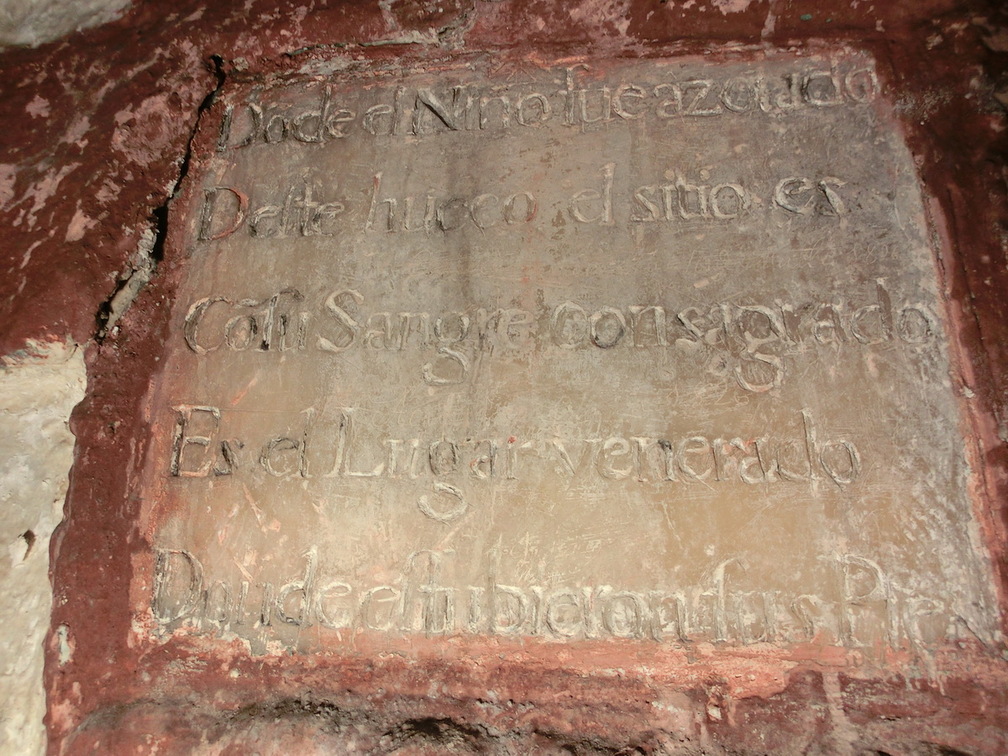 Dõde el Niño fue azotado
Deste hueco el sitio es
Cõ su Sangre consagrado
Es el Lugar venerado
Donde estubieron sus Pies